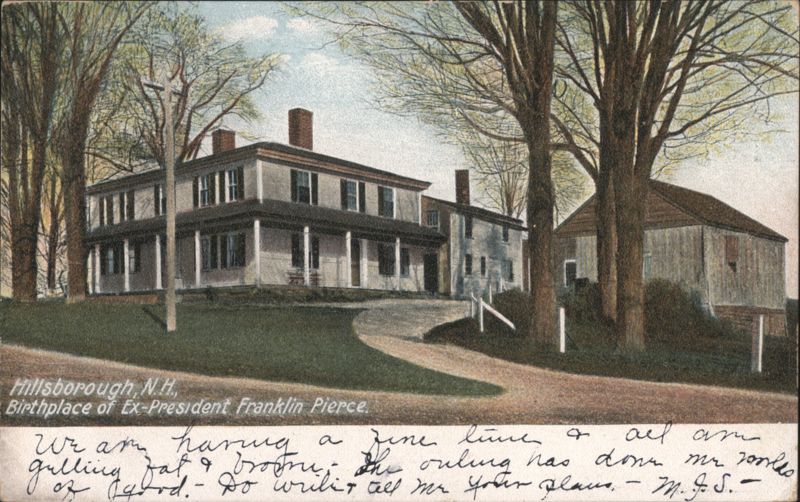 Hillsborough, N.H.,
Birthplace of Ex-President Franklin Pierce.
We are having a fine time & all are
getting fat & brown. - The outing has done me worlds
of good. - Do write & tell me your plans. - M.J.S. -